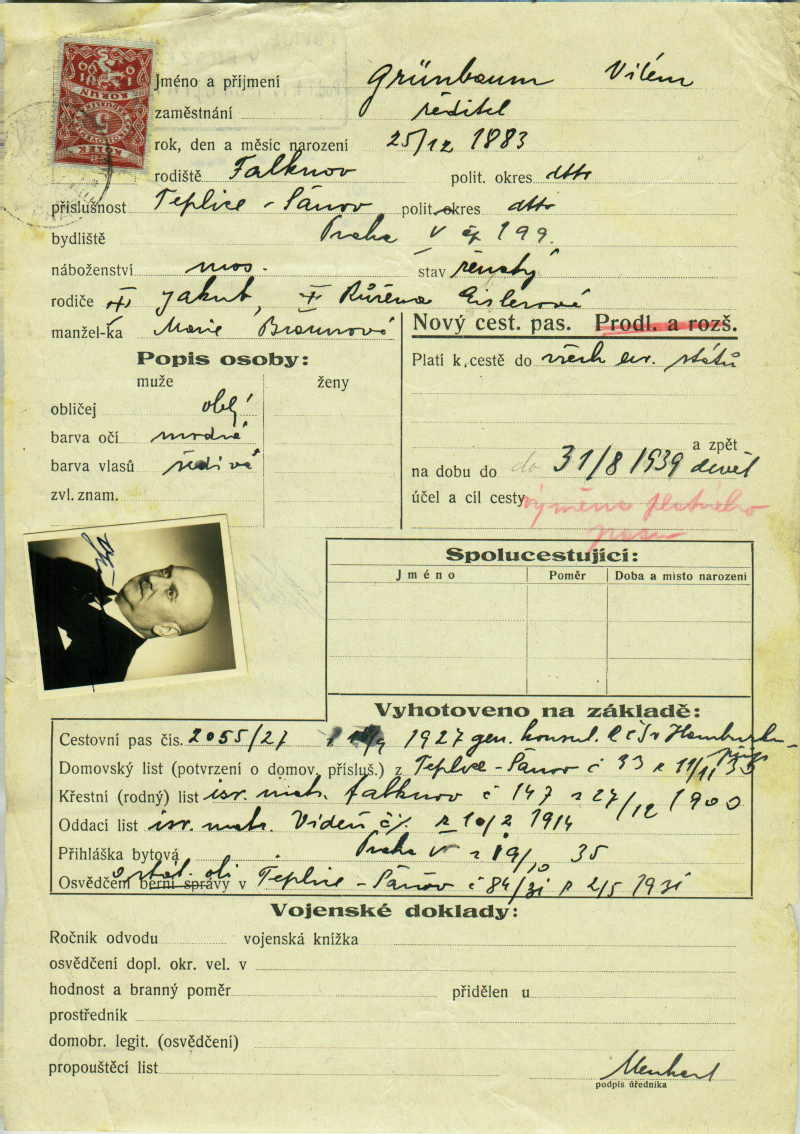 Jméno a příjmení Grünbaum Vilém
zaměstnání ředitel
rok, den a měsíc narození 25/12 1883
rodiště Falknov polit. okres dtto
příslušnost Teplice - Šanov polit. okres dtto
bydliště Praha V čp 199.
náboženství mos. stav ženatý
rodiče Jakub, Růžena Eislerová
manžel-ka Marie Braunová
Nový cest. pas. Prodl. a rozš.
Popis osoby:
muže ženy
obličej oblý
barva očí modré
barva vlasů šedivá
zvl. znam.
Platí k cestě do všech evr. států
a zpět
na dobu do do 31/8 1939
účel a cíl cesty výměna platného
pasu
Spolucestující:
Jméno Poměr Doba a místo narození
Vyhotoveno na základě:
Cestovní pas čís. 2055/27 1927 gen. konsul. RČS v Hamburku
Domovský list (potvrzení o domov. přísluš.) z Teplice - Šanov č 33 z 11/11 35
Křestní (rodný) list isr. matr. Falknov č 147 z 27/12 1900
Oddací list isr. matr. Vídeň č/. z 10/2 1914
Přihláška bytová Praha V z 19/10 35
Osvědčení berní správy v Teplice - Šanov č 84/31 z 2/5 1931
Vojenské doklady:
Ročník odvodu vojenská knížka
osvědčení dopl. okr. vel. v
hodnost a branný poměr přidělen u
prostředník
domobr. legit. (osvědčení)
propouštěcí list
podpis úředníka